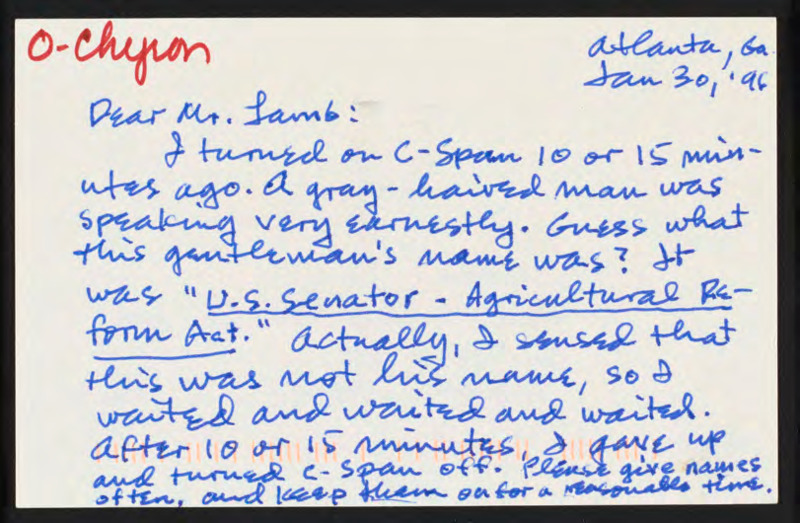 O-Chyron
Atlanta, Ga.
Jan 30, '96
Dear Mr. Lamb:
I turned on C-Span 10 or 15 min-
utes ago. A gray-haired man was
speaking very earnestly. Guess what
this gentleman's name was? It
was "U.S. Senator - Agricultural Re-
form Act." Actually, I sensed that
this was not his name, so I
waited and waited and waited.
After 10 or 15 minutes, I gave up
and turned C-Span off. Please give names
often, and keep them on for a reasonable time.